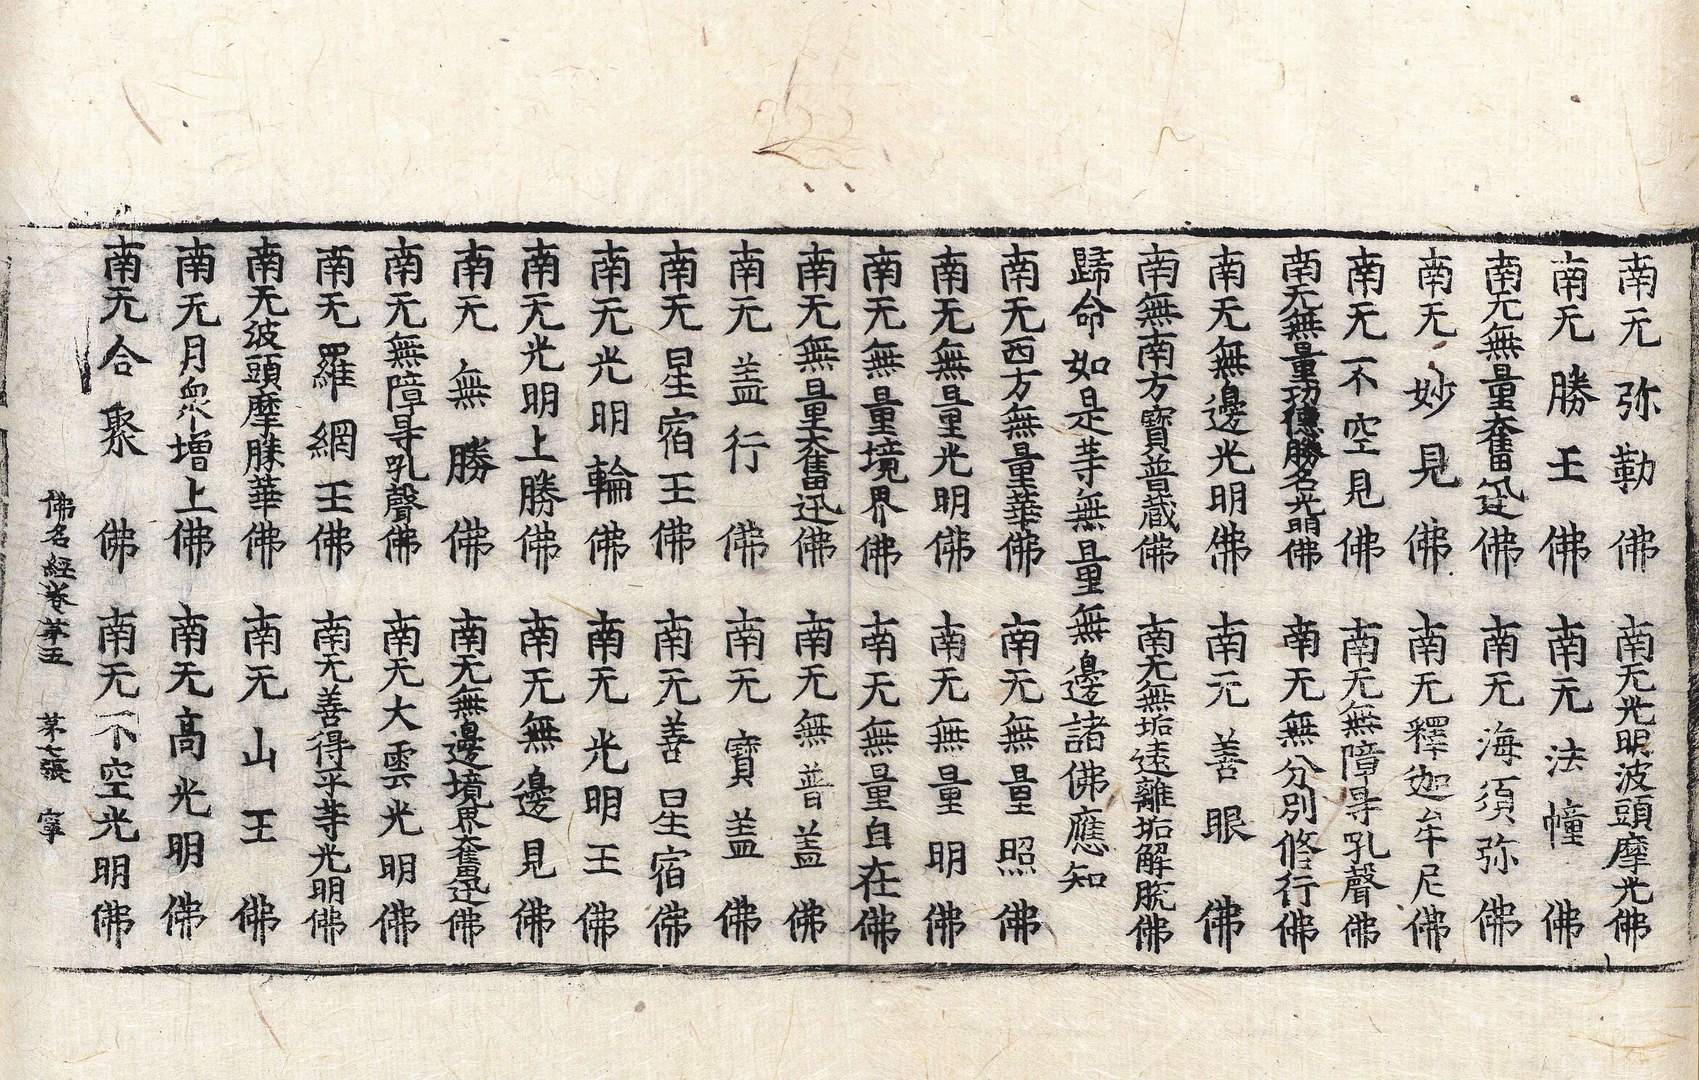 南无弥勒佛　南无光明波頭摩光佛
南无勝王佛　南无法幢佛
南无無量奮迅佛　南无海須弥佛
南无妙見佛　南无釋迦牟尼佛
南无不空見佛　南无無障㝵吼聲佛
南无無量功德勝名光明佛　南无無分別修行佛
南无無邊光明佛　南无善眼佛
南無南方寶普藏佛　南无無垢遠離垢解脫佛
歸命如是等無量無邊諸佛應知
南无西方無量華佛　南无無量照佛
南无無量光明佛　南无無量明佛
南无無量境界佛　南无無量自在佛
南无無量奮迅佛　南无無普盖佛
南无盖行佛　南无寶盖佛
南无星宿王佛　南无善星宿佛
南无光明輪佛　南无光明王佛
南无光明上勝佛　南无無邊見佛
南无無勝佛　南无無邊境界奮迅佛
南无無障㝵吼聲佛　南无大雲光明佛
南无羅網王佛　南无善得平等光明佛
南无波頭摩勝華佛　南无山王佛
南无月衆增上佛　南无高光明佛
南无合聚佛　南无不空光明佛
佛名經卷第五　第七張　寧